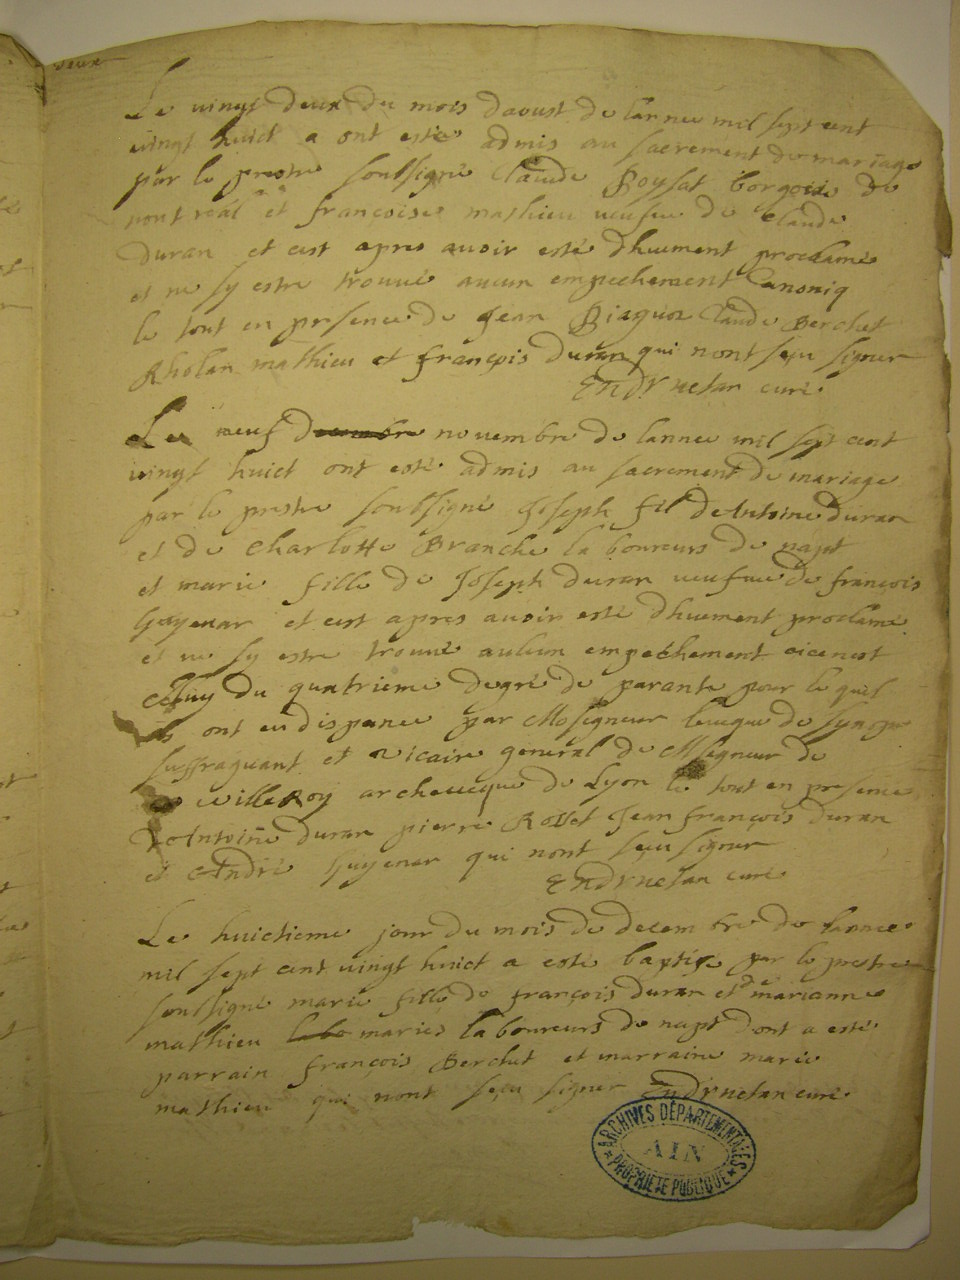 Le vingt deux du mois daoust de lannee mil sept cent
vingt huict a ont estè admis au sacrement de mariage
par le prestre soubsigné Claude Boysat borgois de
pont real et françoise mathieu veufue de Claude
Duran et cest apres avoir esté dhuement proclamé
et ne sy estre trouvé aucun empechement Canoniq
le tout en presence de Jean Claude Berchet
Rholan mathieu et françois duran qui nont seçu signer
curé
Le neuf novembre de lannee mil sept cent
vingt huict ont esté admis au sacrement de mariage
par le prestre soubsigné Joseph fil de Antoine duran
et de Charlotte Branche laboureurs de napt
et marie fille de Joseph duran veufve de françois
Guyenar et cest apres avoir esté dhuement proclamé
et ne sy estre trouvé auleun empechement
celuy du quatrieme degré de parante pour le quil
ils ont eu dispance par Moseigneur leveque de Synope
suffraguant et vicaire general de Mseigneur de
villeRoy archeveque de Lyon le tout en presence
de Antoine duran pierre Rosset Jean françois duran
et André Guyenar qui nont seçu signer
curé
Le huictieme jour du mois de decembre de lannee
mil sept cent vingt huict a esté baptise par le prestre
soubsigné marie fille de françois duran et de marianne
mathieu mariés laboureurs de napt dont a esté
parrain françois Berchet et marraine marie
mathieu qui nont seçu signer curé
ARCHIVES DÉPARTEMENTALES
AIN
PROPRIÉTÉ PUBLIQUE